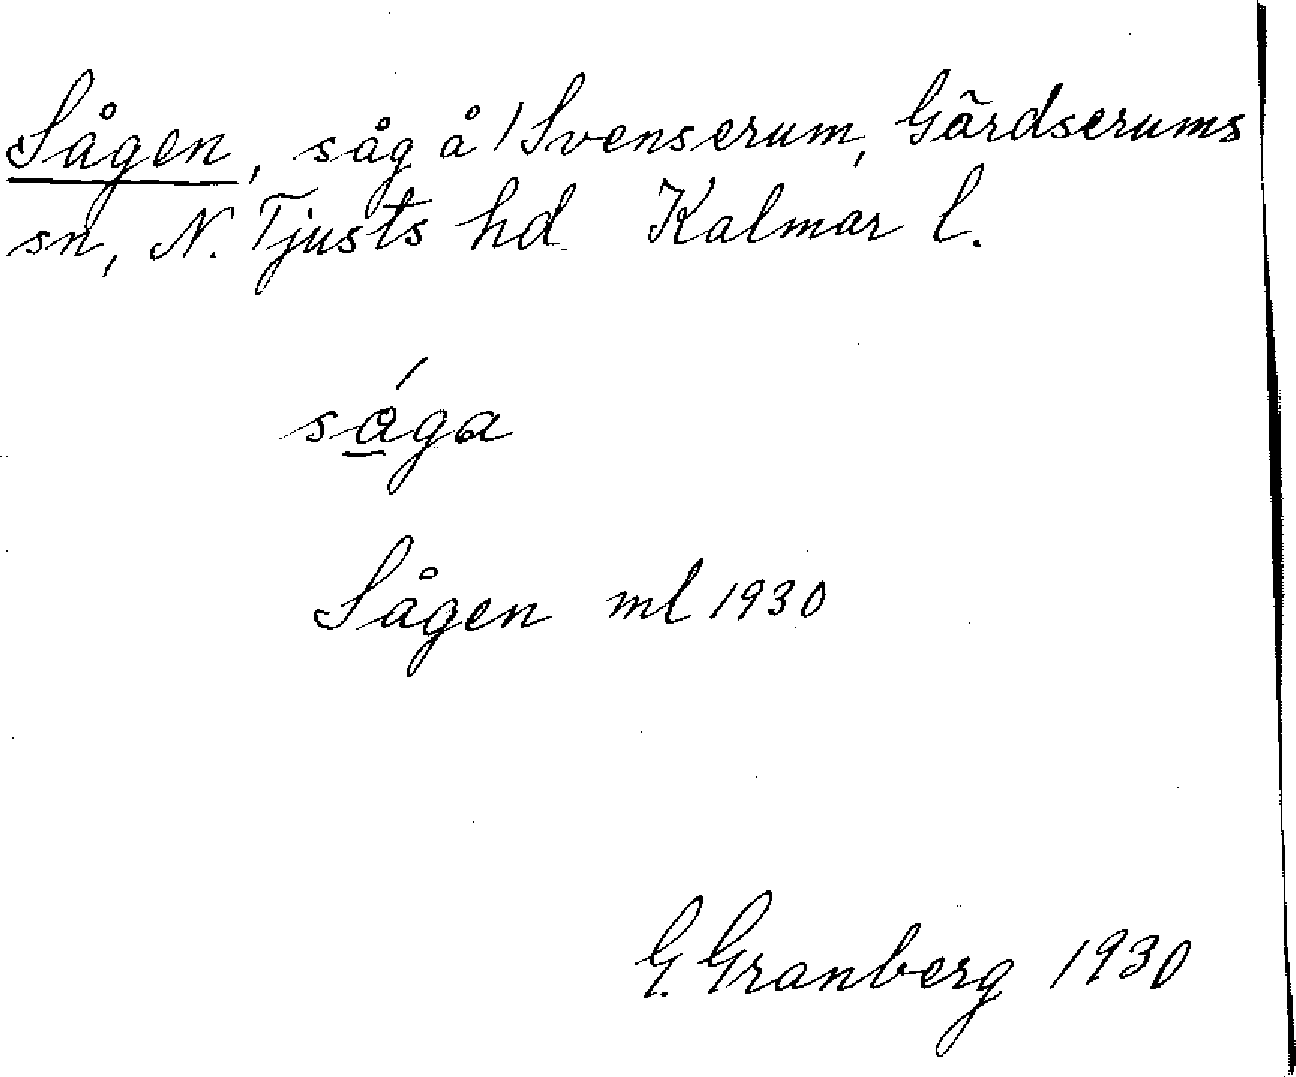 Sågen, såg å 1 Svenserum, Gärdserums
sn, N. Tjusts hd Kalmar l.
såga
Sågen ml 1930
G. Granberg 1930